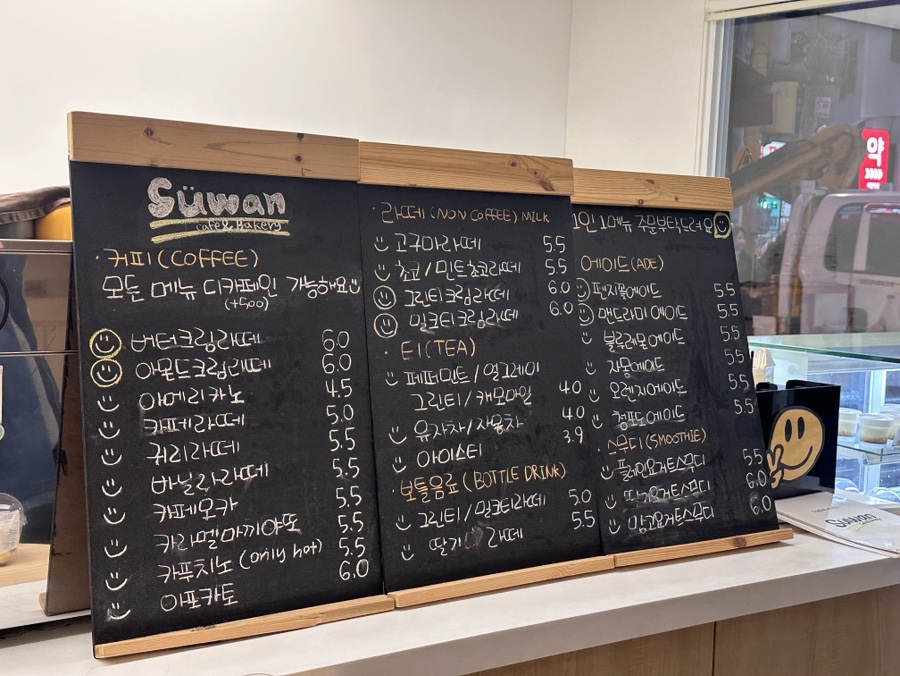 Süwan
cafe & Bakery
· 커피 (COFFEE)
모든 메뉴 디카페인 가능해요
(+500)
버터크림라떼 6.0
아몬드크림라떼 6.0
아메리카노 4.5
카페라떼 5.0
귀리라떼 5.5
바닐라라떼 5.5
카페모카 5.5
카라멜마끼아또 5.5
카푸치노 (only hot) 5.5
아포카토 6.0
· 라떼 (NON COFFEE) MILK
고구마라떼 5.5
초코/민트초코라떼 5.5
그린티크림라떼 6.0
밀크티크림라떼 6.0
· 티 (TEA)
페퍼민트/얼그레이
그린티/캐모마일 4.0
유자차/자몽차 4.0
아이스티 3.9
· 보틀음료 (BOTTLE DRINK)
그린티/밀크티라떼 5.0
딸기 라떼 5.5
1인 1메뉴 주문부탁드려요
에이드 (ADE)
에이드 5.5
맨드라미에이드 5.5
블루레몬에이드 5.5
자몽에이드 5.5
오렌지에이드 5.5
청포도에이드 5.5
· 스무디 (SMOOTHIE)
플레인요거트스무디 5.5
요거트스무디 6.0
망고요거트스무디 6.0
약
Süwan